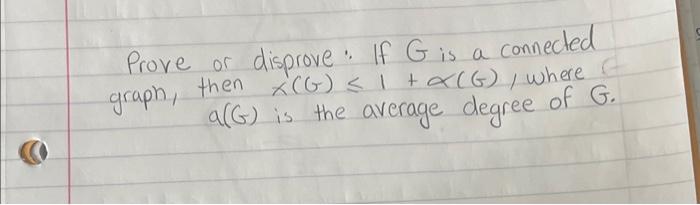 Prove or disprove: If G is a connected
graph, then χ(G) ≤ 1 + α(G), where
a(G) is the average degree of G.